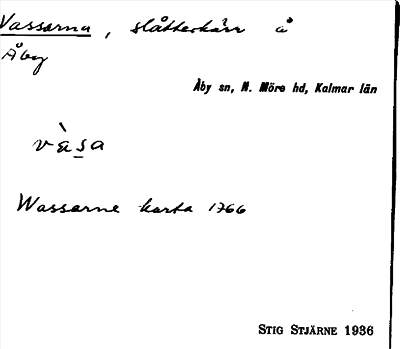 Vassarna, slåtterkärr å
Åby
Åby sn, N. Möre hd, Kalmar län
vàsa
Wassarne karta 1766
STIG STJÄRNE 1936